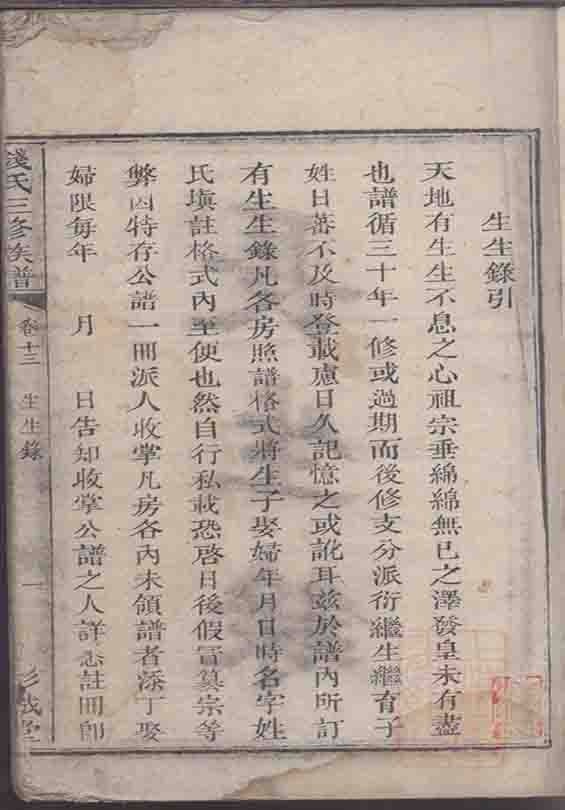 生生錄引
天地有生生不息之心祖宗垂綿綿無已之澤發皇未有盡
也譜循三十年一修或過期而後修支分派衍繼生繼育子
姓日蕃不及時登載慮日久記憶之或訛耳茲於譜內所訂
有生生錄凡各房照譜格式將生子娶婦年月日時名字姓
氏塡註格式內至便也然自行私載恐啓日後假冒纂宗等
弊因特存公譜一冊派人收掌凡房各內未領譜者添丁娶
婦限每年　月　日告知收掌公譜之人詳悉註冊卽
錢氏三修族譜
卷十三
生生錄
一
彭城堂